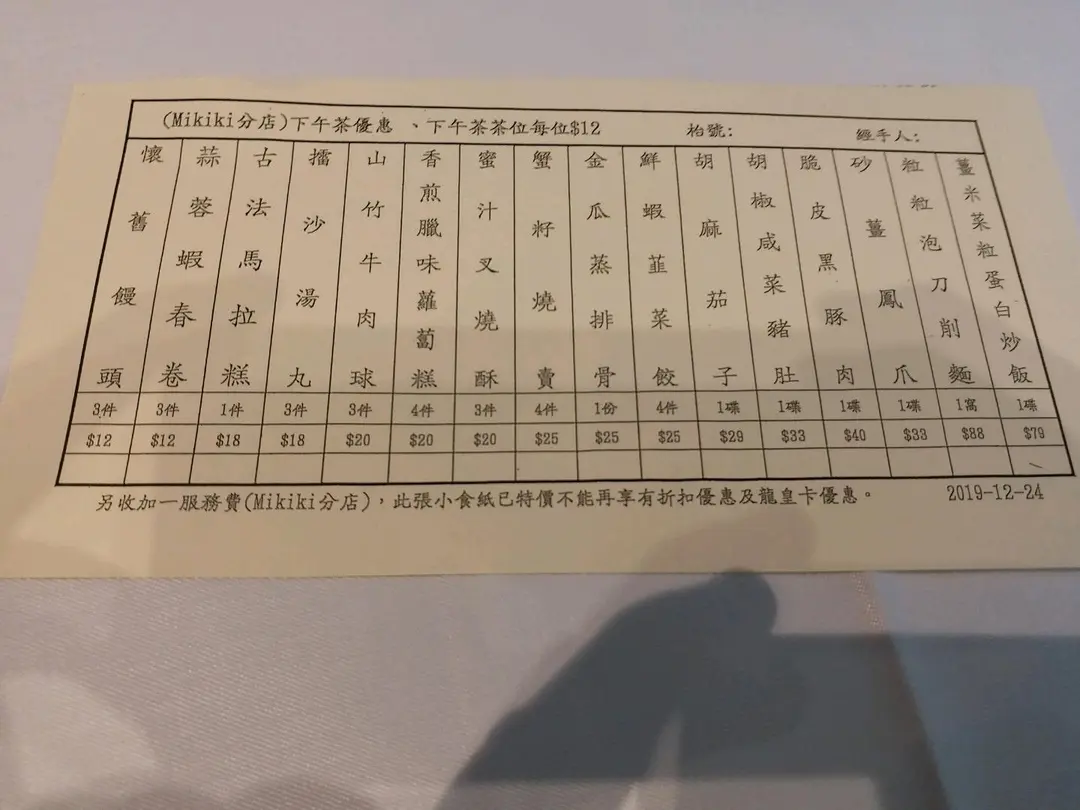 (Mikiki分店)下午茶優惠 、下午茶茶位每位$12 枱號: 經手人:
懷舊饅頭 3件 $12
蒜蓉蝦春卷 3件 $12
古法馬拉糕 1件 $18
擂沙湯丸 3件 $18
山竹牛肉球 3件 $20
香煎臘味蘿蔔糕 4件 $20
蜜汁叉燒酥 3件 $20
蟹籽燒賣 4件 $25
金瓜蒸排骨 1份 $25
鮮蝦韮菜餃 4件 $25
胡麻茄子 1碟 $29
胡椒咸菜豬肚 1碟 $33
脆皮黑豚肉 1碟 $40
砂薑鳳爪 1碟 $33
粒粒泡刀削麵 1窩 $88
薑米菜粒蛋白炒飯 1碟 $79
另收加一服務費(Mikiki分店)，此張小食紙已特價不能再享有折扣優惠及龍皇卡優惠。 2019-12-24